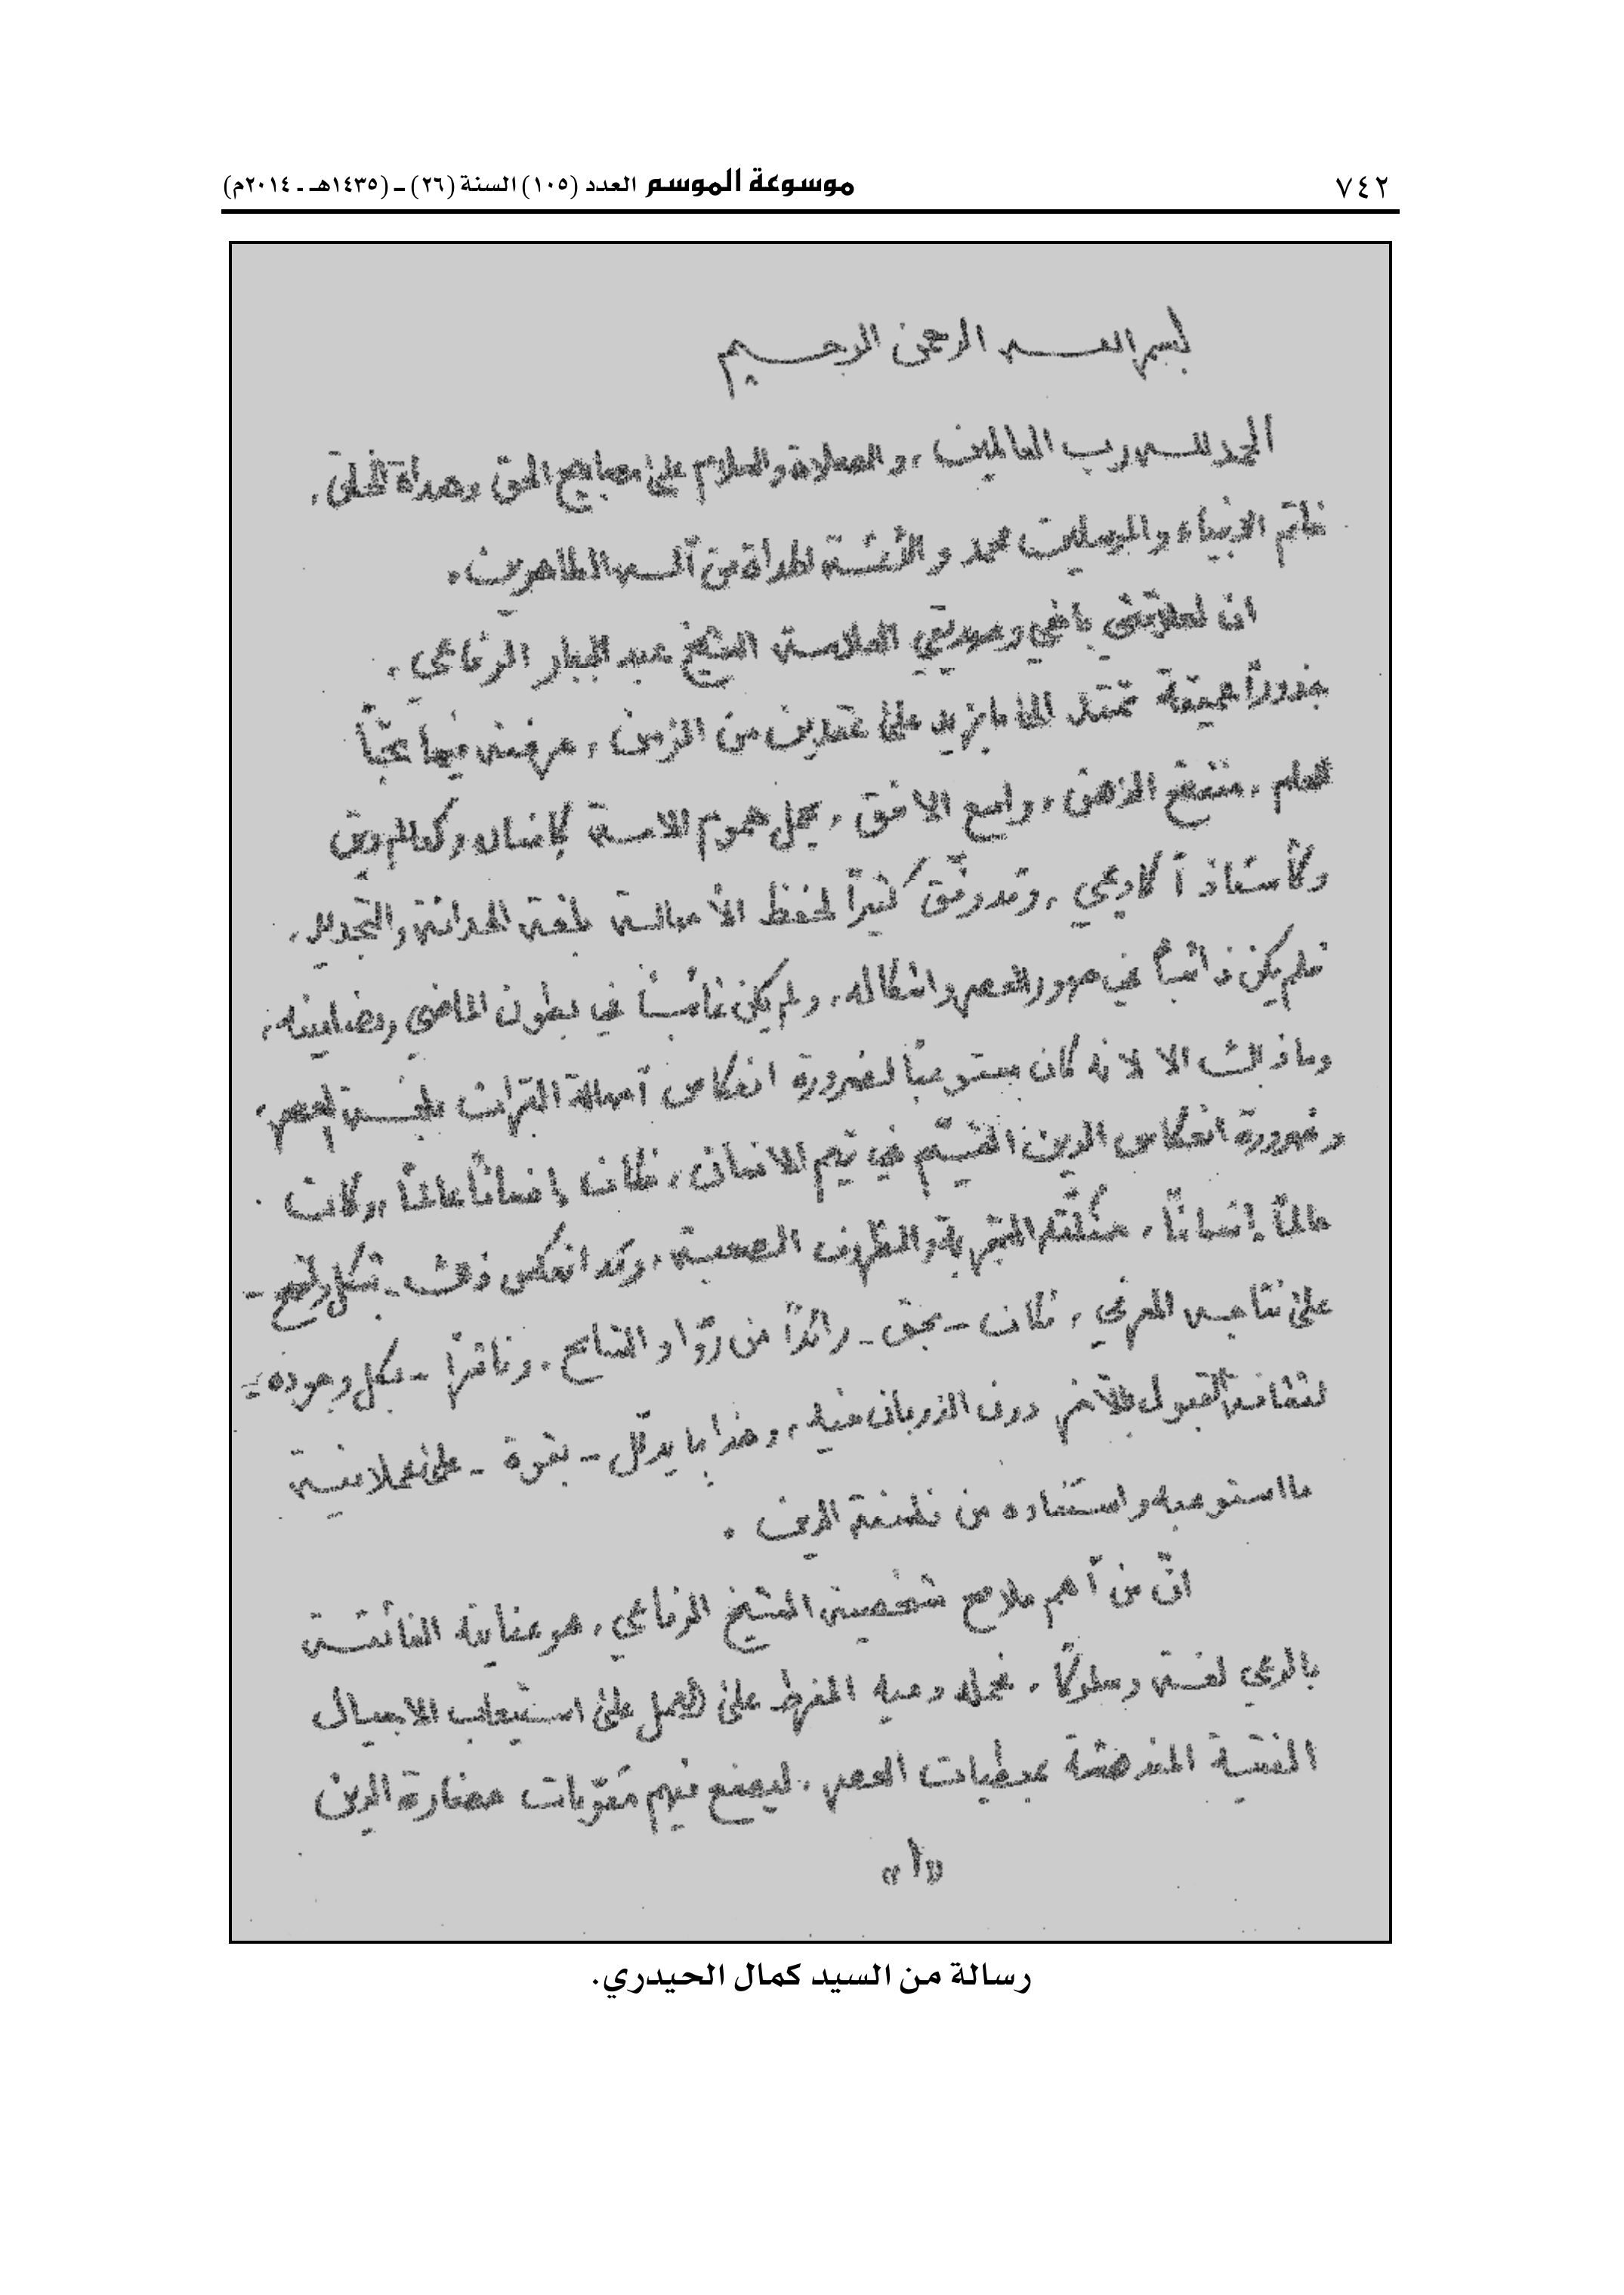 ٧٤٢
موسوعة الموسم العدد (١٠٥) السنة (٢٦) ـ (١٤٣٥هـ ـ ٢٠١٤م)
بسم الله الرحمن الرحيم
الحمد لله رب العالمين، والصلاة والسلام على مصابيح الحق وهداة الخلق،
خاتم الانبياء والمرسلين محمد والأئمة الهداة من آله الطاهرين.
ان لعلاقتي بأخي وصديقي العلامة الشيخ عبد الجبار الرفاعي،
جذوراً عميقة تمتد الى ما يزيد على عقدين من الزمن، عرفته فيها محبّاً
للعلم، متفتح الذهن، واسع الافق، يحمل هموم الامة كإنسان وكعالم دين
وكأستاذ أكاديمي، وقد وفّق كثيراً لحفظ الأصالة بلغة الحداثة والتجديد،
فلم يكن ذائباً في صور العصر واشكاله، ولم يكن غائباً في بطون الماضي ومضامينه،
وما ذلك الا لانه كان مستوعباً لضرورة انعكاس أصالة التراث بلغة العصر،
وضرورة انعكاس الدين القيّم في قيم الانسان، فكان إنساناً عالماً، وكان
عالماً إنساناً، صقلته التجربة والظروف الصعبة، وقد انعكس ذلك - بشكل واضح -
على نتاجه المعرفي، فكان - بحق - رائداً من روّاد التسامح، وناقراً - بكل وجوده -
لثقافة القبول بالآخر دون الذوبان فيه، وهذا ما يدلّل - بقوة - على عملانية
ما استوعبه واستفاده من فلسفة الدين.
انّ من أهم ملامح شخصية الشيخ الرفاعي، هو عنايته الفائقة
بالوعي لغة وسلوكاً، فحمله وعيه المفرط على العمل على استيعاب الاجيال
الفتية المندهشة بمعطيات العصر، ليصنع فيهم مقوّمات حضارة الدين
«١»
رسالة من السيد كمال الحيدري.